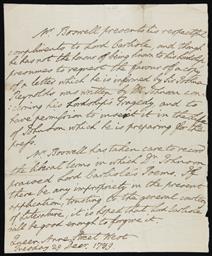 Mr. Boswell presents his respectful
compliments to Lord Carlisle, and though
he has not the honour of being known to his Lordship
presumes to request the favour of a copy
of a letter which he is informed by Sir Joshua
Reynolds was written by Dr. Johnson con-
cerning his Lordship's Tragedy and to
have permission to insert it in the Life
of Johnson which he is preparing for the
press.
Mr. Boswell has taken care to record
the liberal terms in which Dr. Johnson
praised Lord Carlisle's Poems. If
there be any impropriety in the present
application, trusting to the general courtesy
of Literature, it is hoped that Lord Carlisle
will be good enough to forgive it.
Queen Anne Street West
Tuesday 29 Dec. 1789